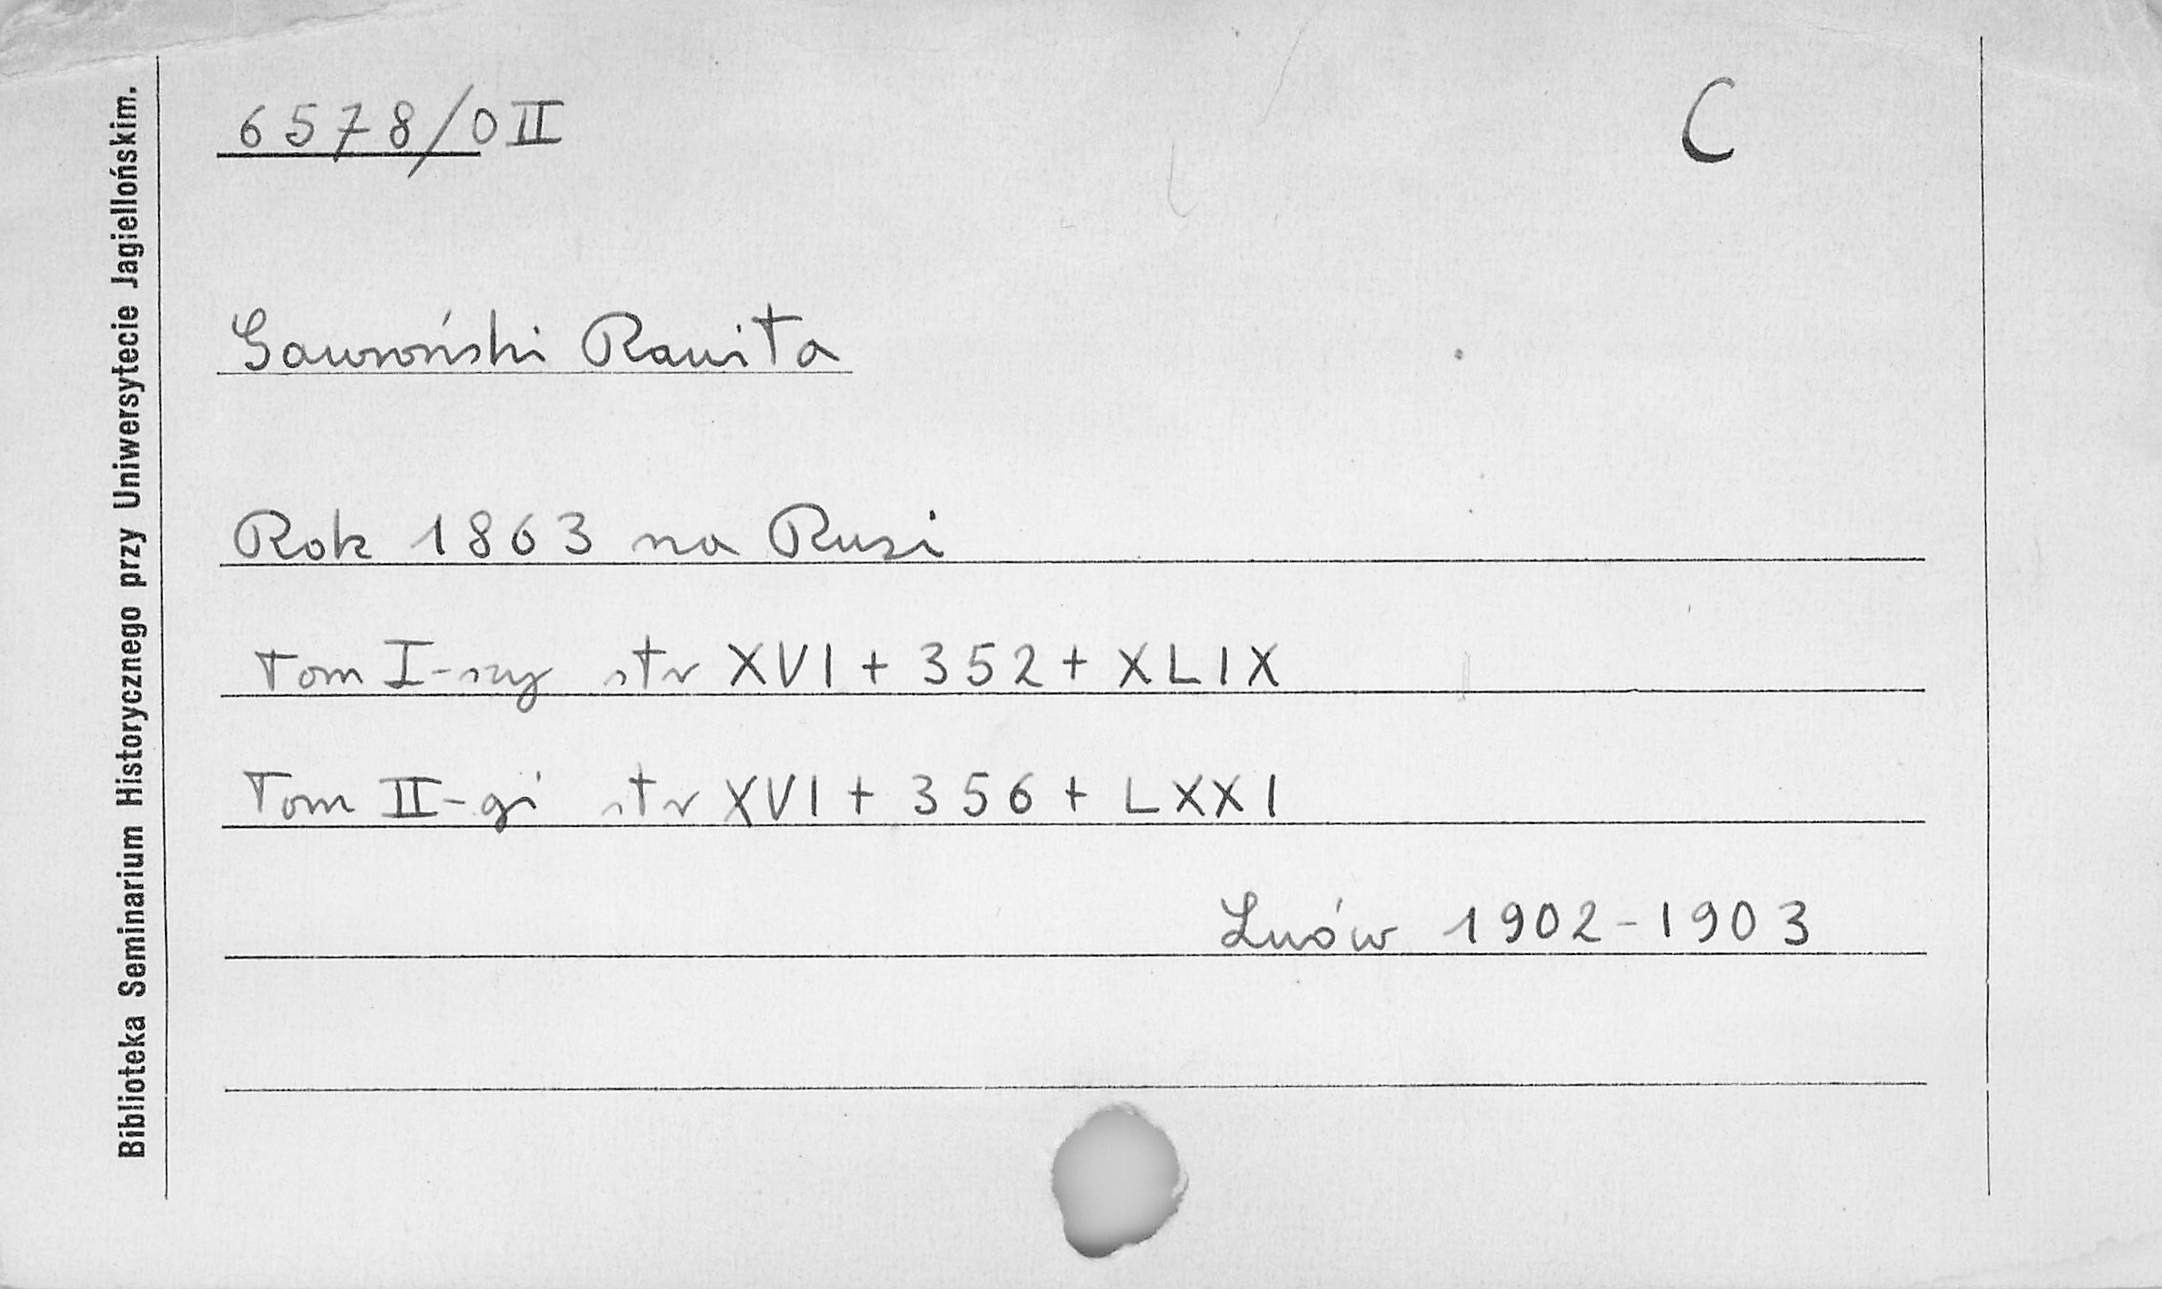 6578/0 II
C
Gawroński Rawita
Rok 1863 na Rusi
Tom I-szy str XVI + 352 + XLIX
Tom II-gi str XVI + 356 + LXXI
Lwów 1902-1903
Biblioteka Seminarium Historycznego przy Uniwersytecie Jagiellońskim.